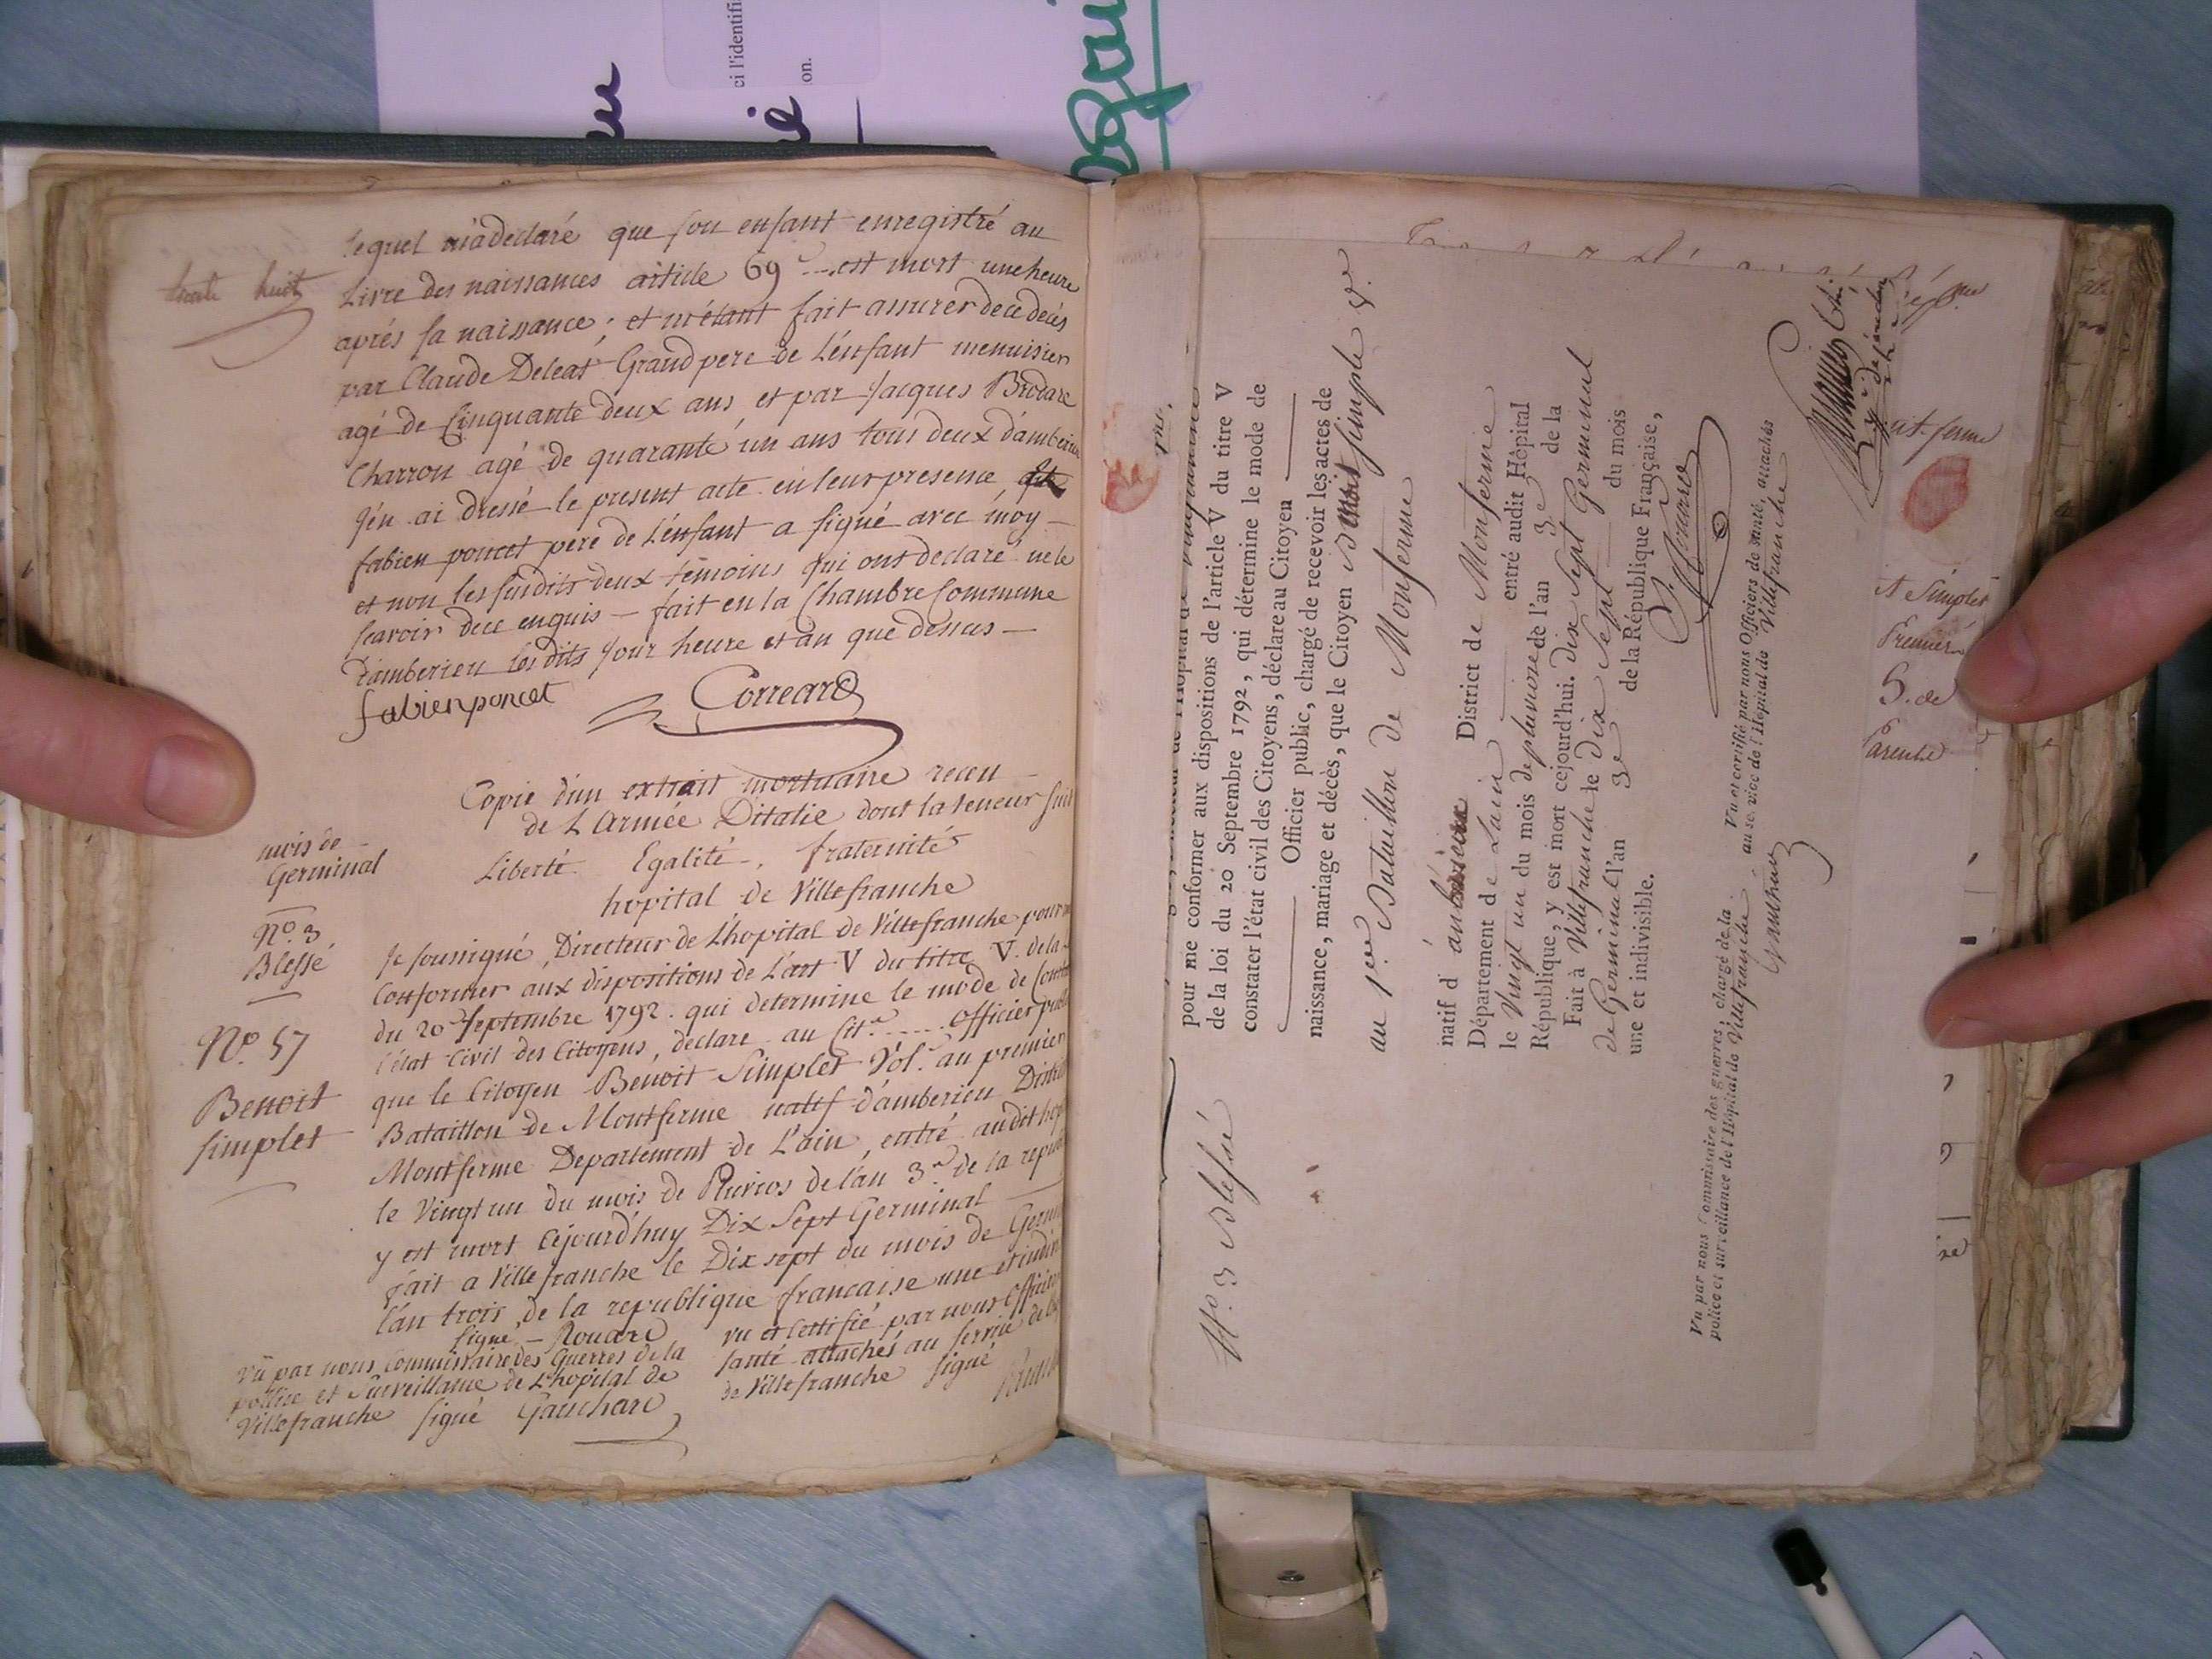 lequel m'a declaré que son enfant enregistré au
Livre des naissances article 69e est mort une heure
aprés sa naissance; et m'étant fait assurer de ce decés
par Claude Deleat Grand pere de L'enfant menuisier
agé de Cinquante deux ans et par Jacques Brodare
Charron agé de quarante un ans tous deux d'amberieu
J'en ai dressé le present acte en leur presence
fabien poncet pere de L'enfant a signé avec moy
et non les susdits deux temoins qui ont declaré ne le
scavoir dece enquis — fait en la Chambre Commune
D'amberieu les dits jour heure et an que dessus —
trente huit
fabien poncet
Correard
Copie d'un extrait mortuaire receu
de L'Armée D'italie dont la teneur suit
mois de
Germinal
Liberté Egalité, fraternité
hopital de Villefranche
No. 3
Blessé
No. 57
Benoit
Simplet
Je soussigné, Directeur de L'hopital de Villefranche pour me
Conformer aux dispositions de L'art V du titre V. de la
du 20 Septembre 1792. qui determine le mode de
l'état Civil des Citoyens, declare au Cit.n ...... officier
que le Citoyen Benoit Simplet Vol.re au premier
Bataillon de Montferme natif d'amberieu
Montferme Departement de L'ain, entré audit
le Vingt un du mois de Pluvios de l'an 3.e de la
y est mort Cejourd'huy Dix Sept Germinal
fait a Villefranche le Dix sept du mois de
l'an trois de la republique francaise une et
Signé — Rouard
Vû par nous Commissaire des Guerres de la
pollice et Surveillance de L'hopital de
Villefranche signé Gauchard
vu et Certifié par nous officiers
santé attachés au service de
de Villefranche signé
No. 3 Blessé
pour me conformer aux dispositions de l'article V du titre V
de la loi du 20 Septembre 1792, qui détermine le mode de
constater l'état civil des Citoyens, déclare au Citoyen
Officier public, chargé de recevoir les actes de
naissance, mariage et décès, que le Citoyen Benoit Simple V.
au 1er Bataillon de Monferme
natif d'amberieu District de Monferme
Département de Lain entré audit Hôpital
le Vingt un du mois de pluviose de l'an 3e de la
République, y est mort cejourd'hui. dix Sept Germinal
Fait à Villefranche le dix Sept du mois
de Germinal l'an 3e de la République Française,
une et indivisible.
Rouard
Vu par nous Commissaire des guerres, chargé de la
police et surveillance de l'Hôpital de Villefranche.
Vu et certifié par nous Officiers de santé, attachés
au service de l'Hôpital de Villefranche
ont ferme
A Simplet
Premier
S. de
Parenté
ci l'identifi
on.